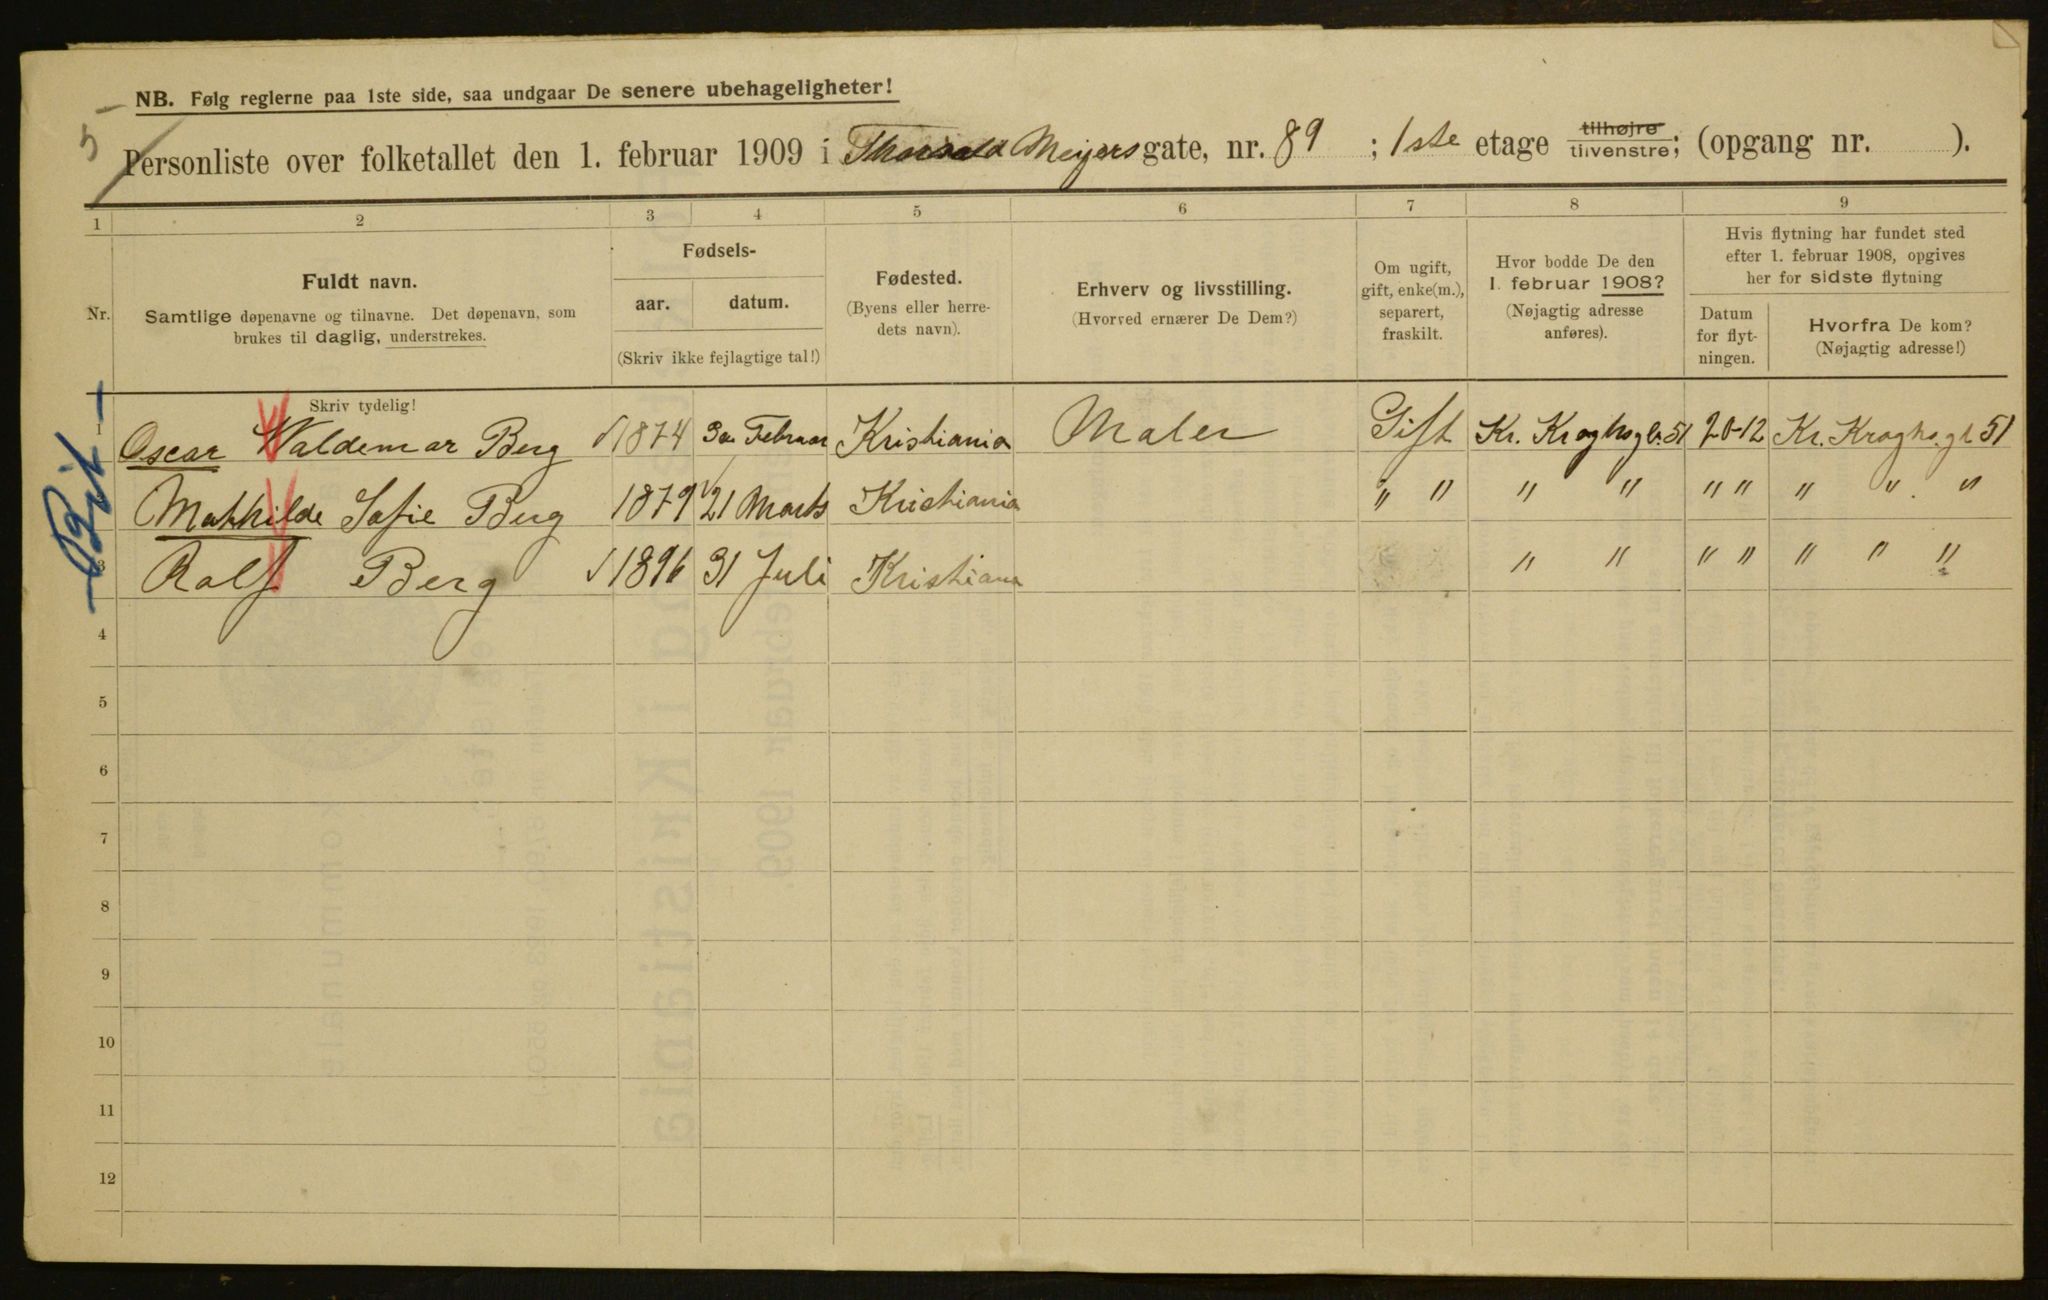 5
NB. Følg reglerne paa 1ste side, saa undgaar De senere ubehageligheter!
Personliste over folketallet den 1. februar 1909 i Thorvald Meijers gate, nr. 89 ; 1ste etage tilhøjre tilvenstre; (opgang nr. ).
1 2 3 4 5 6 7 8 9
Nr.
Fuldt navn.
Samtlige døpenavne og tilnavne. Det døpenavn, som
brukes til daglig, understrekes.
Fødsels-
aar. datum.
(Skriv ikke fejlagtige tal!)
Fødested.
(Byens eller herre-
dets navn).
Erhverv og livsstilling.
(Hvorved ernærer De Dem?)
Om ugift,
gift, enke(m.),
separert,
fraskilt.
Hvor bodde De den
1. februar 1908?
(Nøjagtig adresse
anføres).
Hvis flytning har fundet sted
efter 1. februar 1908, opgives
her for sidste flytning
Datum
for flyt-
ningen.
Hvorfra De kom?
(Nøjagtig adresse!)
Skriv tydelig!
1 Oscar Waldemar Berg 1874 Februar Kristiania Maler Gift Kr. Kroghsgt. 51 20-12 Kr. Kroghs.gt 51
Mathhilde Sofie Berg 1879 21 Marts Kristiania " " " " " " " " "
3 Ralf Berg 1896 31 Juli Kristiana " " " " " " "
4
5
6
7
8
9
10
11
12